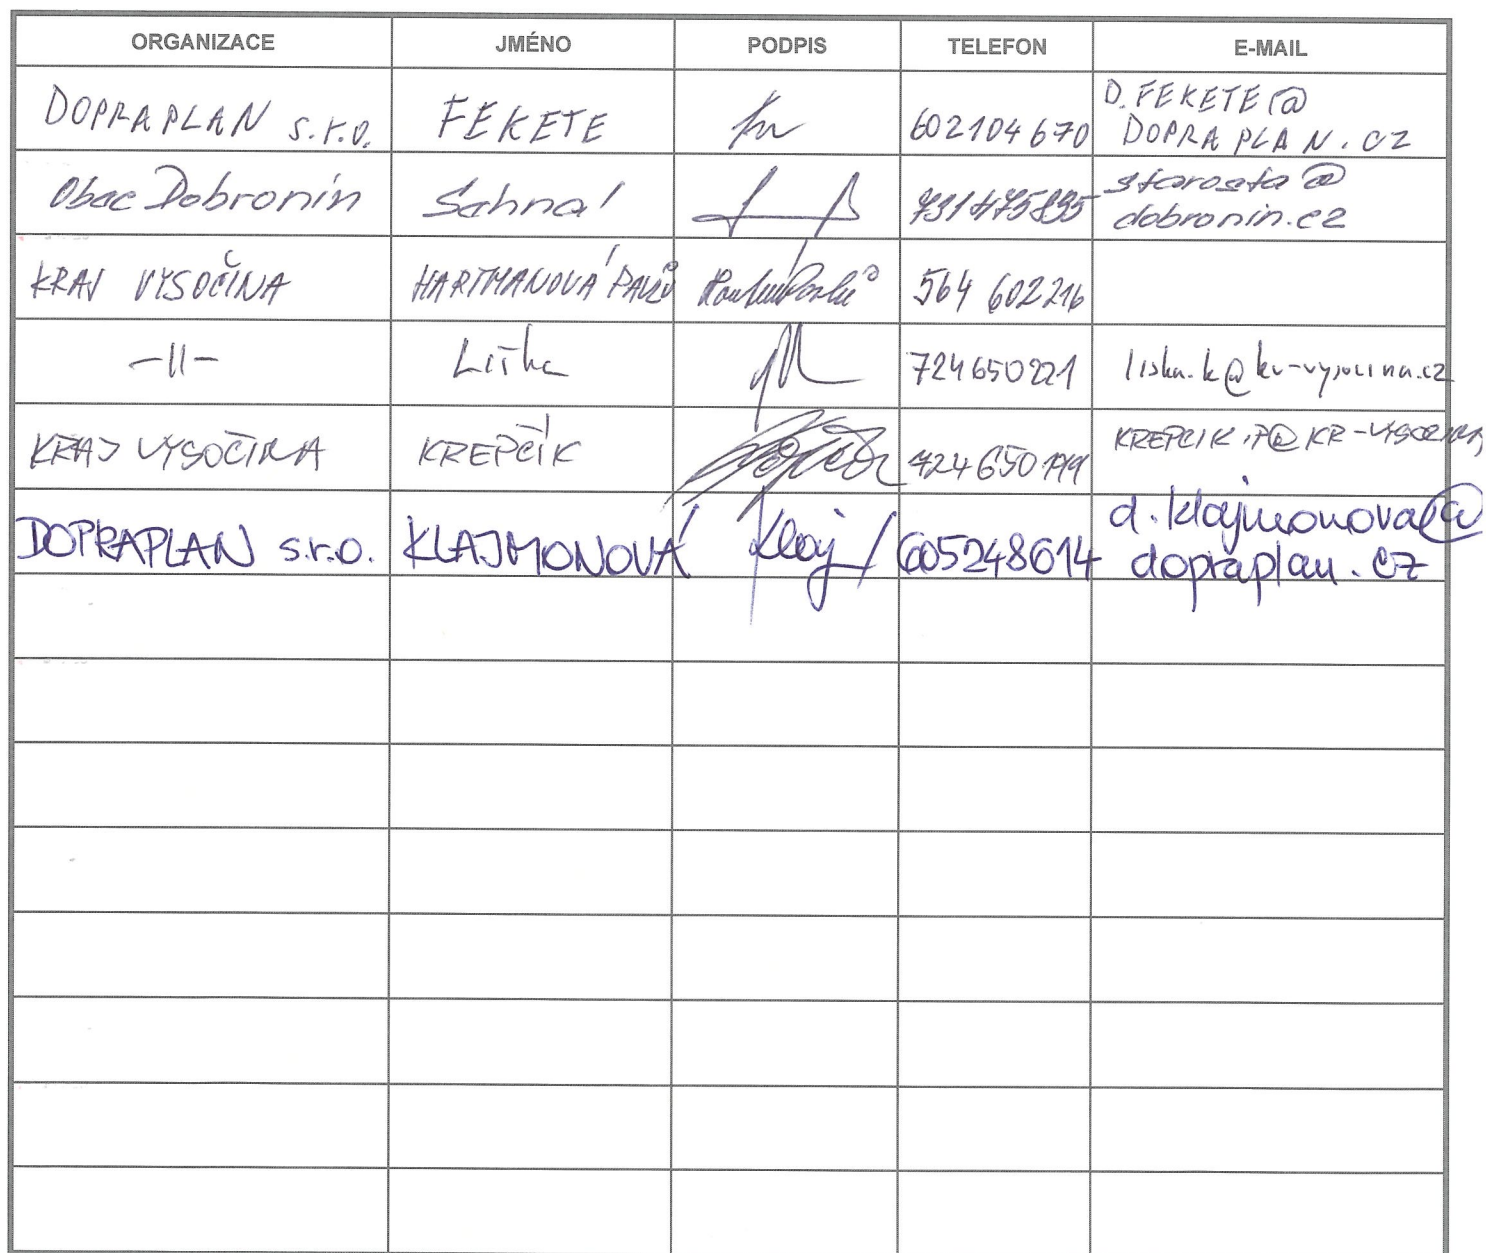 ORGANIZACE JMÉNO PODPIS TELEFON E-MAIL
DOPRAPLAN s.r.o. FEKETE 602104670 D.FEKETE@
DOPRAPLAN.CZ
Obec Dobronín Sehnal starosta@
dobronin.cz
KRAJ VYSOČINA HARTMANOVÁ PAVLŮ 564 602216
-||- Liška 724650221 liska.k@kr-vysocina.cz
KRAJ VYSOČINA KREPČÍK KREPCIK.P@KR-VYSOCINA
DOPRAPLAN s.r.o. KLAJMONOVÁ Klaj 605248614 d.klajmonova@
dopraplan.cz